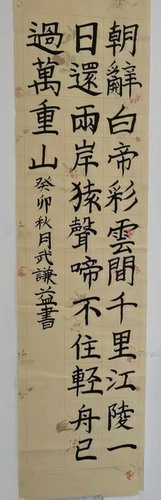 朝辭白帝彩雲間千里江陵一
日還兩岸猿聲啼不住輕舟已
過萬重山
癸卯秋月武謙益書